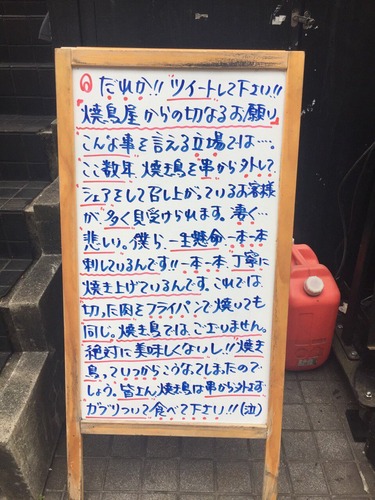 だれか!! ツイートして下さい!!
『焼鳥屋からの切なるお願い』
こんな事を言える立場では…。
ここ数年、焼き鳥を串から外して
シェアをして召し上がっているお客様
が、多く見受けられます。凄く…
悲しい。僕ら、一生懸命一本一本
刺しているんです!!一本一本、丁寧に
焼き上げているんです。これでは
切った肉をフライパンで焼いても
同じ。焼き鳥ではございません。
絶対に美味しくないし!!焼き
鳥っていつからこうなってしまったので
しょう。皆さん焼き鳥は串から外さず
ガブリついて食べて下さい!!(泣)